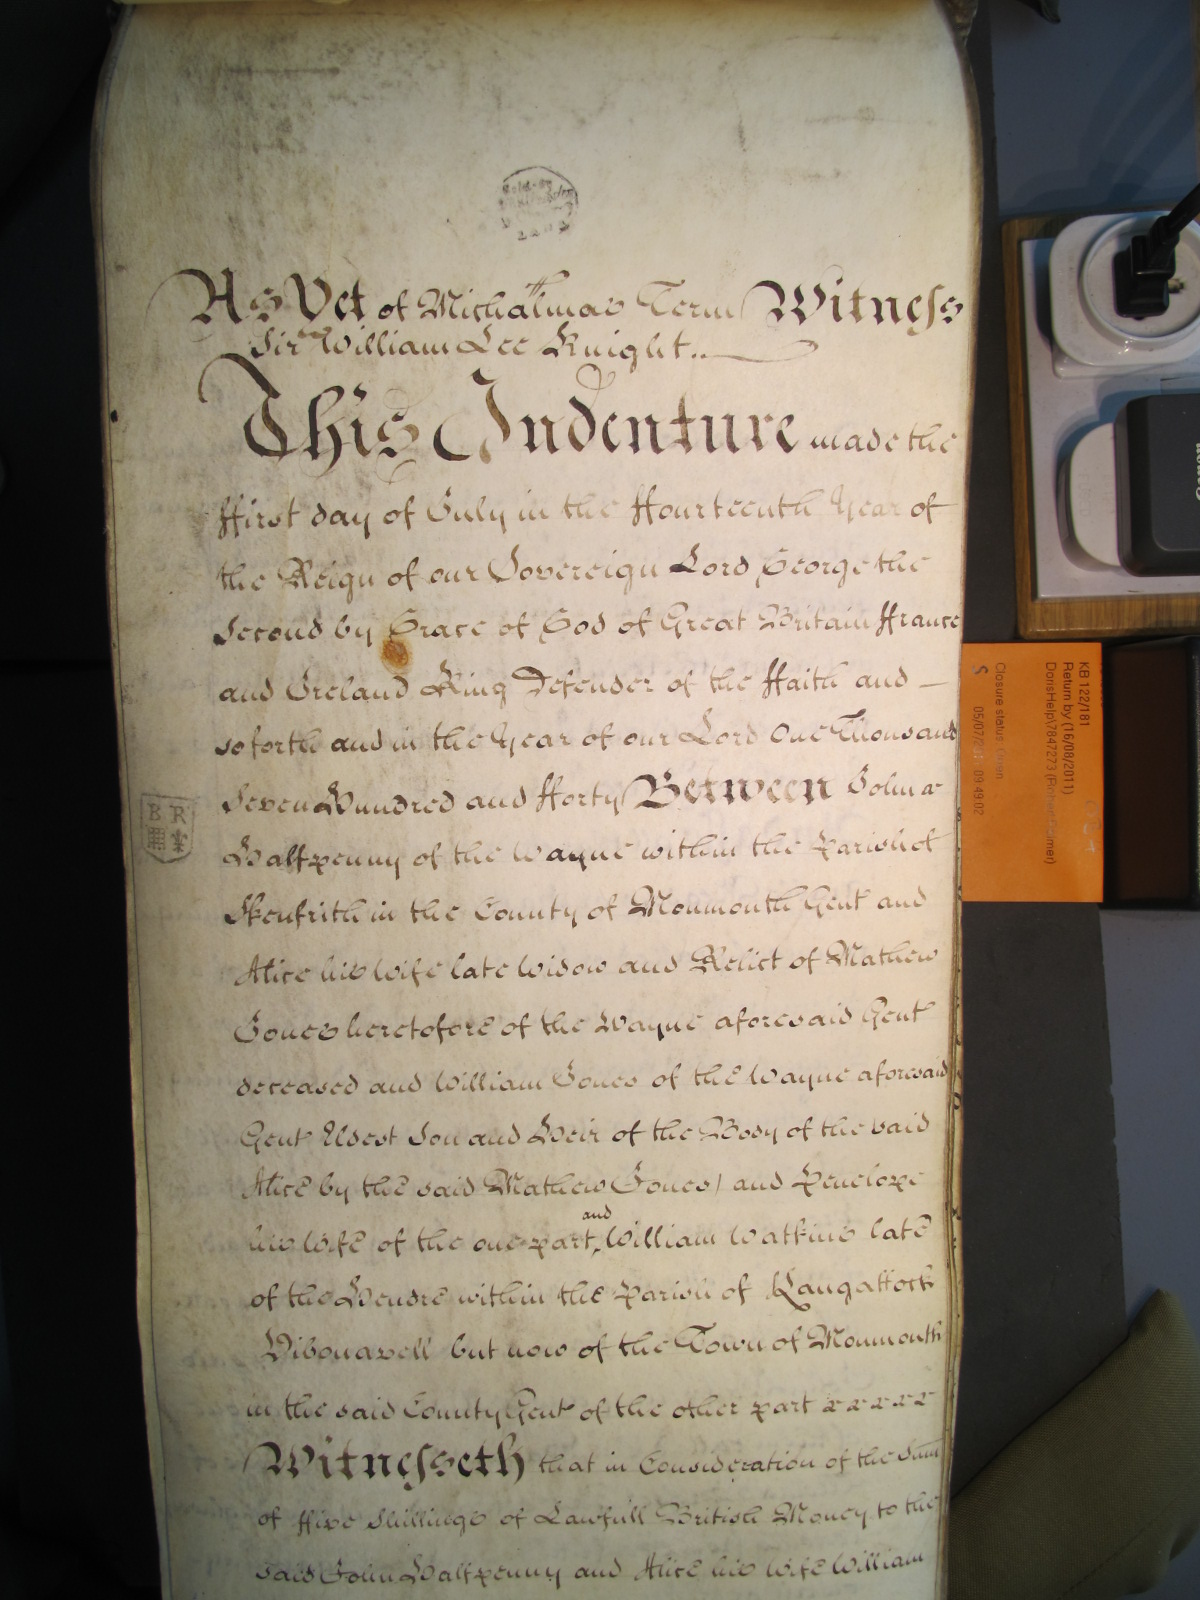 As Yet of Michālmas Term Witness
Sir William Lee Knight..
This Indenture made the
ffirst day of July in the ffourteenth Year of
the Reign of our Sovereign Lord George the
Second by Grace of God of Great Britain ffrance
and Ireland King Defender of the ffaith and —
so forth and in the Year of our Lord One Thousand
Seven Hundred and fforty Between John
Halfpenny of the Wayne within the Parish of
Skenfrith in the County of Monmouth Gent and
Alice his Wife late Widow and Relict of Mathew
Jones heretofore of the Wayne aforesaid Gent
deceased and William Jones of the Wayne aforesaid
Gent Eldest Son and Heir of the Body of the said
Alice by the said Mathew Jones) and Penelope
his Wife of the one part and William Watkins late
of the Hendre within the Parish of Langattock
Vibonavell but now of the Town of Monmouth
in the said County Gent of the other part
Witnesseth that in Consideration of the Sum
of ffive Shillings of Lawfull British Money to the
said John Halfpenny and Alice his Wife William
B R
KB 122/181
Return by (16/08/2011)
DorisHelp\7847273
Closure status: Open
S
09:49:02